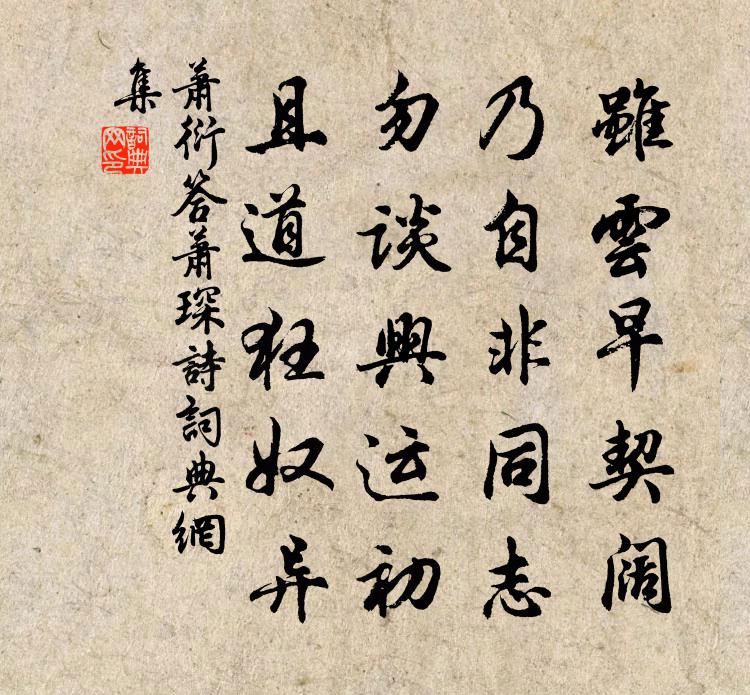 雖雲早契闊
乃自非同志
勿談興运初
且道狂奴异
蕭衍答蕭琛詩詞典網
集
詞典
网印